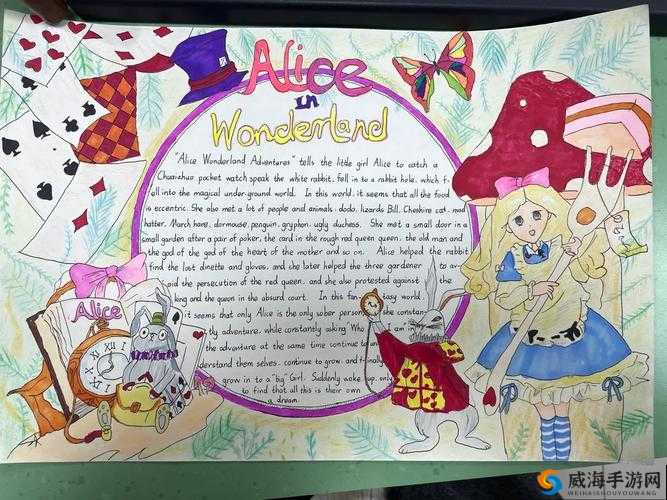 Alice
in
Wonderland
"Alice Wonderland Adventures" tells the little girl Alice to catch a
Chaaizhuo pocket watch speak the white rabbit, fell in to a rabbit hole, which f
ell into the magical under-ground world. In this world, it seems that all the food
is eccentric. She also met a lot of people and animals: dodo, lizards Bill, Cheshire cat, mad
hatter, March hare, dormouse, penguin, gryphon, ugly duchess. She met a small door in a
small garden after a pair of poker, the card in the rough red queen queen, the old man and
the god of the god of the heart of the mother and so on. Alice helped the rabbit
find the lost dinette and gloves, and she later helped the three gardener to av
oid the persecution of the red queen, and she also protested against the
king and the queen in the absurd court. In this fantasy world,
it seems that only Alice is the only uber person, she constan
tly adventure, while constantly asking "Who am in
the adventure at the same time continue to un
derstand them selves, continue to grow, and finaly
grow in to a "big" Girl. Suddenly wake up, only
to find that all this is their own
a dream.
Alice
威海手游网
WEIHAISHOUYOUWANG